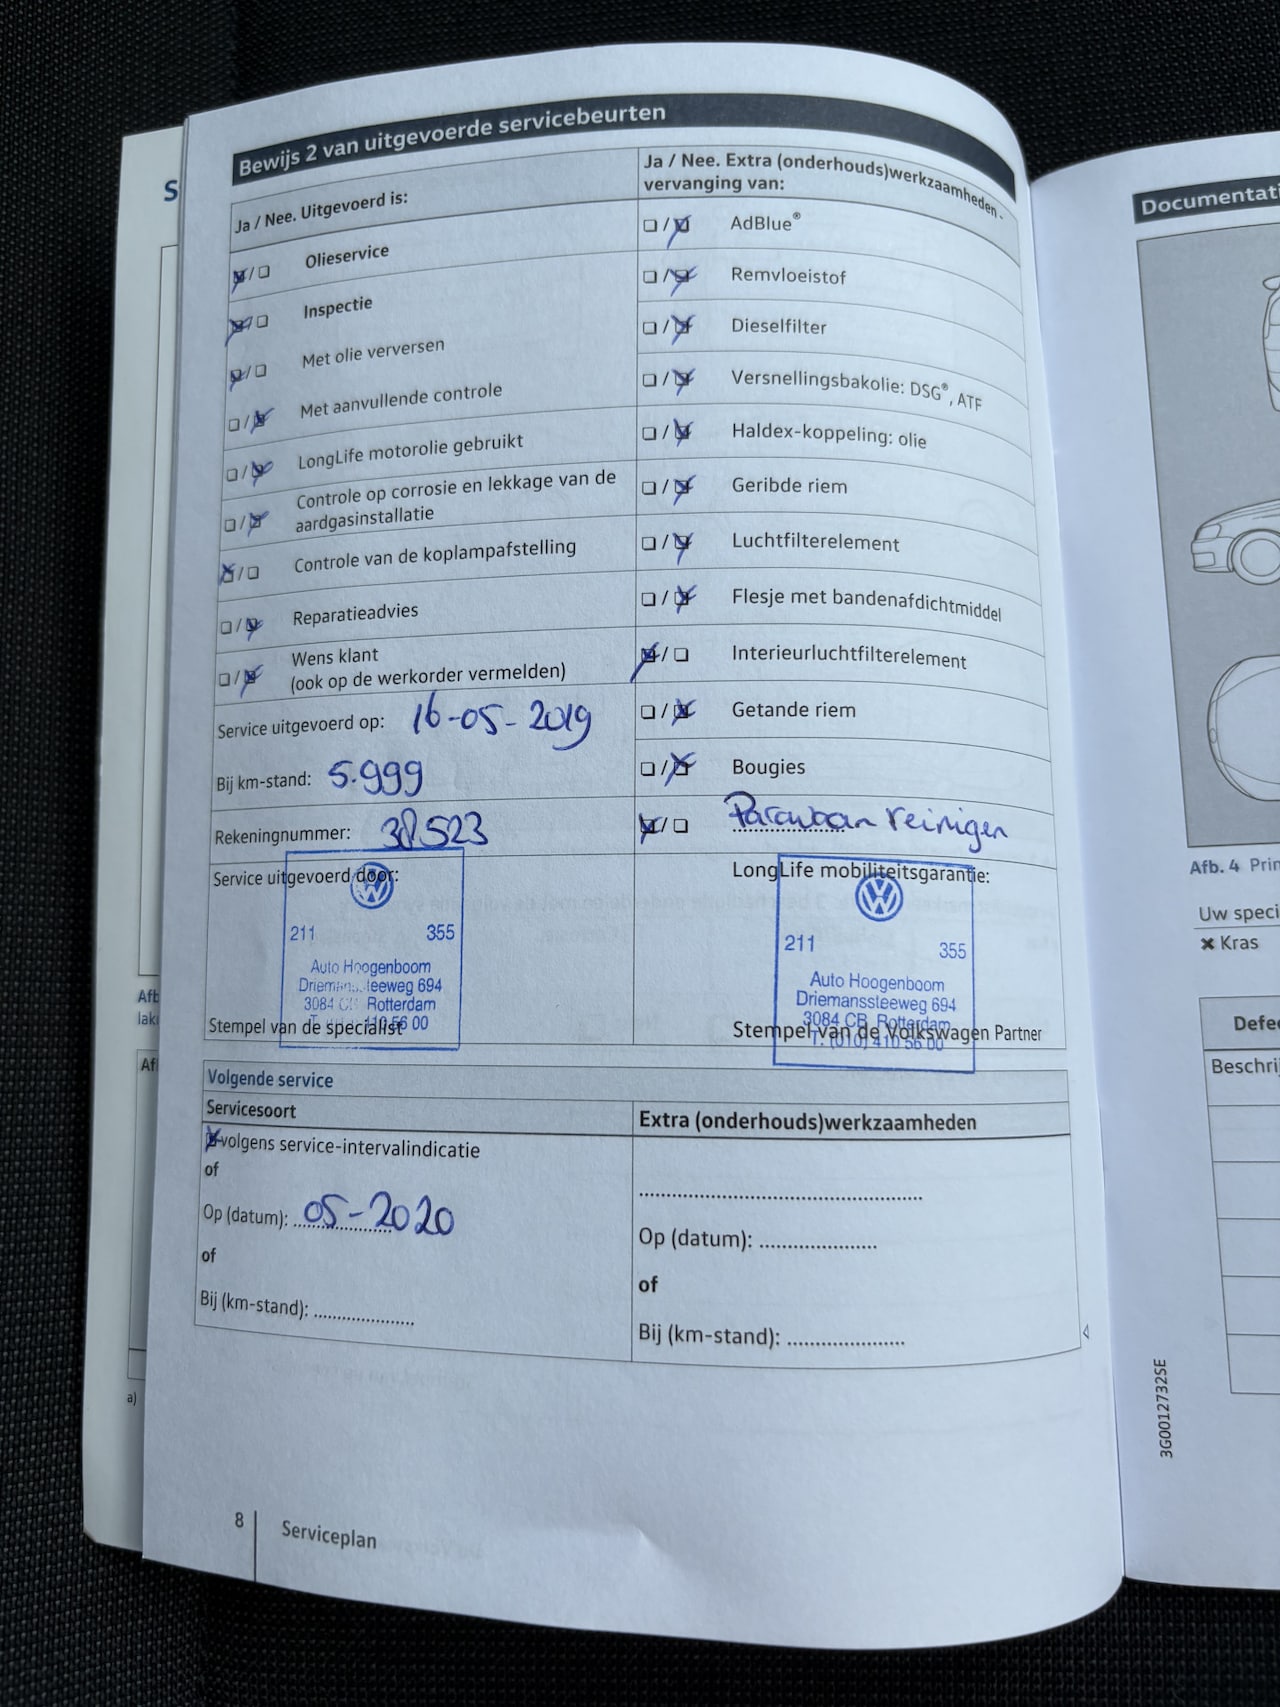 S
Bewijs 2 van uitgevoerde servicebeurten
Ja / Nee. Uitgevoerd is:
Olieservice
Inspectie
Met olie verversen
Met aanvullende controle
LongLife motorolie gebruikt
Controle op corrosie en lekkage van de
aardgasinstallatie
Controle van de koplampafstelling
Reparatieadvies
Wens klant
(ook op de werkorder vermelden)
Service uitgevoerd op: 16-05-2019
Bij km-stand: 5.999
Rekeningnummer: 38523
Service uitgevoerd door:
211 355
Auto Hoogenboom
Driemanssteeweg 694
3084 Rotterdam
56 00
Stempel van de specialist
Ja / Nee. Extra (onderhouds)werkzaamheden -
vervanging van:
AdBlue®
Remvloeistof
Dieselfilter
Versnellingsbakolie: DSG®, ATF
Haldex-koppeling: olie
Geribde riem
Luchtfilterelement
Flesje met bandenafdichtmiddel
Interieurluchtfilterelement
Getande riem
Bougies
Parawaan reinigen
LongLife mobiliteitsgarantie:
211 355
Auto Hoogenboom
Driemanssteeweg 694
3084 CB Rotterdam
T. (010) 410 56 00
Stempel van de Volkswagen Partner
Volgende service
Servicesoort
volgens service-intervalindicatie
of
Op (datum): 05-2020
of
Bij (km-stand): ....................
Extra (onderhouds)werkzaamheden
Op (datum): ....................
of
Bij (km-stand): ....................
8 Serviceplan
Afb
laki
Afl
a)
Documentati
Afb. 4 Prin
Uw speci
✖ Kras
Defec
Beschrij
3G0012732SE